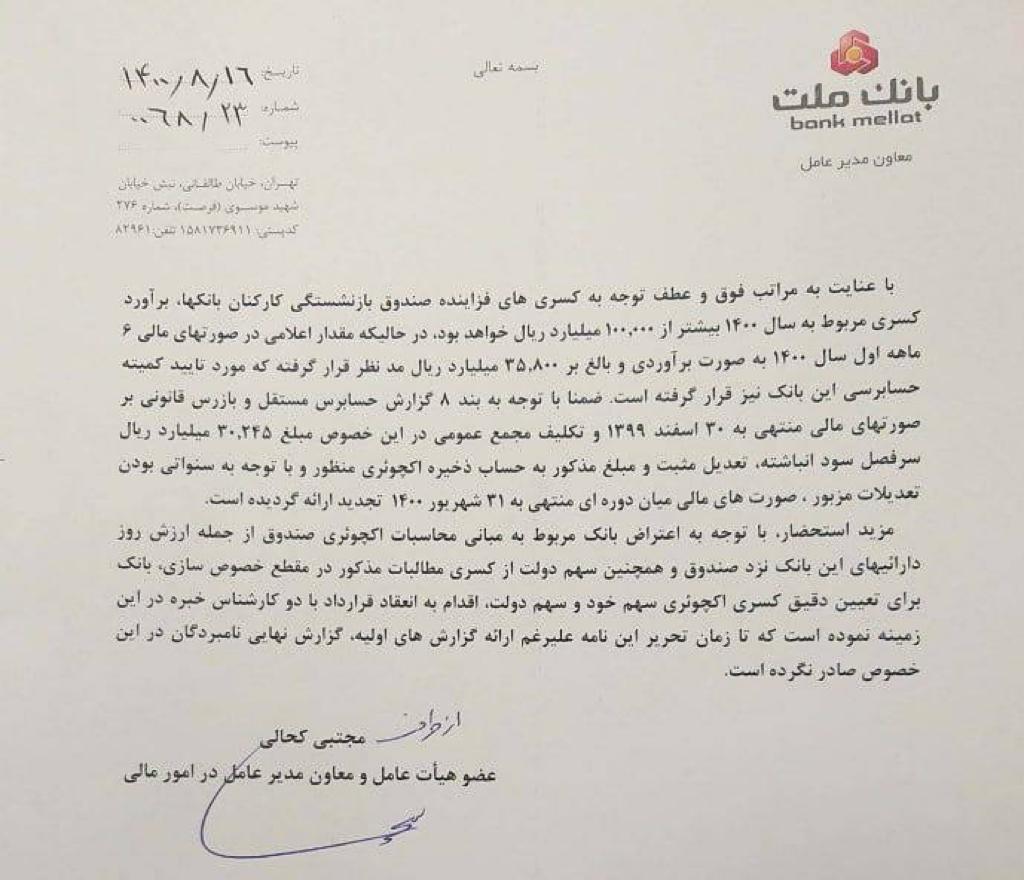 بانک ملت
bank mellat
معاون مدیر عامل
بسمه تعالی
تاریخ: ۱۴۰۰/۸/۱۶
شماره: ۰۰۶۸/۲۳
پیوست:
تهـران، خیابان طالقـانی، نبش خیابان
شهید موسـوی (فرصت)، شماره ۲۷۶
کدپستی: ۱۵۸۱۷۳۶۹۱۱ تلفن: ۸۲۹۶۱
با عنایت به مراتب فوق و عطف توجه به کسری های فزاینده صندوق بازنشستگی کارکنان بانکها، برآورد
کسری مربوط به سال ۱۴۰۰ بیشتر از ۱۰۰,۰۰۰ میلیارد ریال خواهد بود، در حالیکه مقدار اعلامی در صورتهای مالی ۶
ماهه اول سال ۱۴۰۰ به صورت برآوردی و بالغ بر ۳۵,۸۰۰ میلیارد ریال مد نظر قرار گرفته که مورد تایید کمیته
حسابرسی این بانک نیز قرار گرفته است. ضمنا با توجه به بند ۸ گزارش حسابرس مستقل و بازرس قانونی بر
صورتهای مالی منتهی به ۳۰ اسفند ۱۳۹۹ و تکلیف مجمع عمومی در این خصوص مبلغ ۳۰,۲۴۵ میلیارد ریال
سرفصل سود انباشته، تعدیل مثبت و مبلغ مذکور به حساب ذخیره اکچوئری منظور و با توجه به سنواتی بودن
تعدیلات مزبور ، صورت های مالی میان دوره ای منتهی به ۳۱ شهریور ۱۴۰۰ تجدید ارائه گردیده است.
مزید استحضار، با توجه به اعتراض بانک مربوط به مبانی محاسبات اکچوئری صندوق از جمله ارزش روز
دارائیهای این بانک نزد صندوق و همچنین سهم دولت از کسری مطالبات مذکور در مقطع خصوص سازی، بانک
برای تعیین دقیق کسری اکچوئری سهم خود و سهم دولت، اقدام به انعقاد قرارداد با دو کارشناس خبره در این
زمینه نموده است که تا زمان تحریر این نامه علیرغم ارائه گزارش های اولیه، گزارش نهایی نامبردگان در این
خصوص صادر نگرده است.
از طرف مجتبی کحالی
عضو هیأت عامل و معاون مدیر عامل در امور مالی